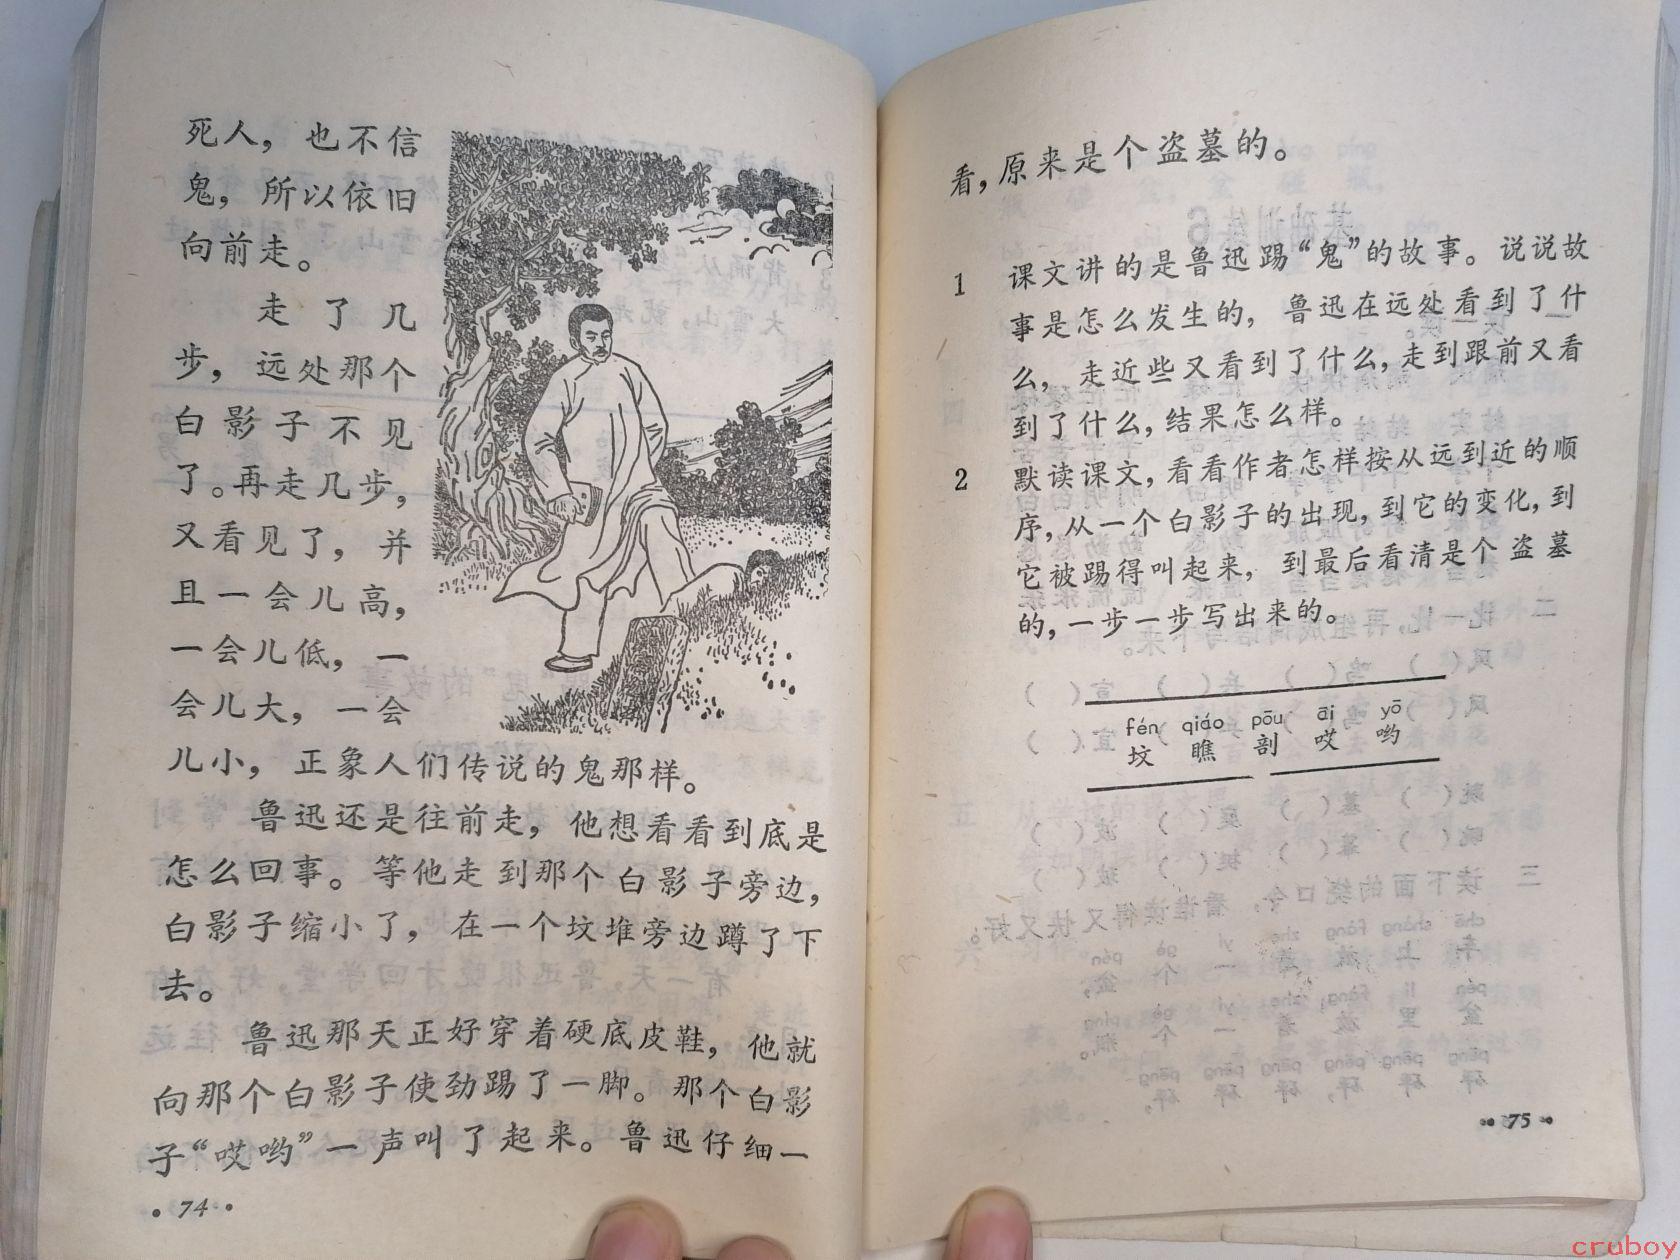 死人，也不信
鬼，所以依旧
向前走。
走了几
步，远处那个
白影子不见
了。再走几步，
又看见了，并
且一会儿高，
一会儿低，一
会儿大，一会
儿小，正象人们传说的鬼那样。
鲁迅还是往前走，他想看看到底是
怎么回事。等他走到那个白影子旁边，
白影子缩小了，在一个坟堆旁边蹲了下
去。
鲁迅那天正好穿着硬底皮鞋，他就
向那个白影子使劲踢了一脚。那个白影
子“哎哟”一声叫了起来。鲁迅仔细一
• 74 •
看，原来是个盗墓的。
1 课文讲的是鲁迅踢“鬼”的故事。说说故
事是怎么发生的，鲁迅在远处看到了什
么，走近些又看到了什么，走到跟前又看
到了什么，结果怎么样。
2 默读课文，看看作者怎样按从远到近的顺
序，从一个白影子的出现，到它的变化，到
它被踢得叫起来，到最后看清是个盗墓
的，一步一步写出来的。
fén qiáo pōu āi yō
坟 瞧 剖 哎 哟
75
cruboy